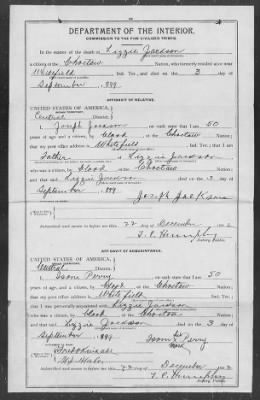 DEPARTMENT OF THE INTERIOR.
COMMISSION TO THE FIVE CIVILIZED TRIBES.
In the matter of the death of Lizzie Jackson
a citizen of the Choctaw Nation, who formerly resided at or near
Whitefield Ind. Ter., and died on the 3 day of
September, 1899
AFFIDAVIT OF RELATIVE.
UNITED STATES OF AMERICA,
INDIAN TERRITORY,
Central District.
I, Joseph Jackson, on oath state that I am 50
years of age and a citizen, by blood, of the Choctaw Nation;
that my post office address is Whitefield, Ind. Ter.; that I am
Father of Lizzie Jackson
who was a citizen, by blood, of the Choctaw Nation;
and that said Lizzie Jackson died on the 3 day of
September, 1899
Joseph Jackson
Subscribed and sworn to before me this 22 day of December, 190
T. P. Humphry
Notary Public.
AFFIDAVIT OF ACQUAINTANCE.
UNITED STATES OF AMERICA,
INDIAN TERRITORY,
Central District.
I, Isom Perry, on oath state that I am 50
years of age, and a citizen by blood of the Choctaw Nation;
that my post office address is Whitefield, Ind. Ter.;
Lizzie Jackson
who was a citizen, by blood, of the Choctaw Nation;
and that said Lizzie Jackson died on the 3 day of
September, 1899
his
Isom x Perry
mark
Subscribed and sworn to before me this 22 day of December, 190
T. P. Humphry
Notary Public.